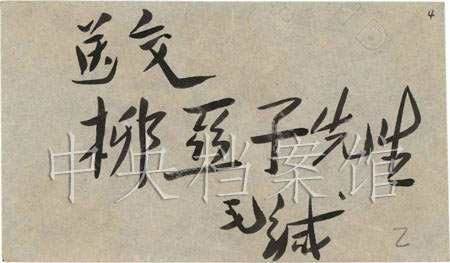 4
送交
柳亞子先生
毛緘
中央档案馆